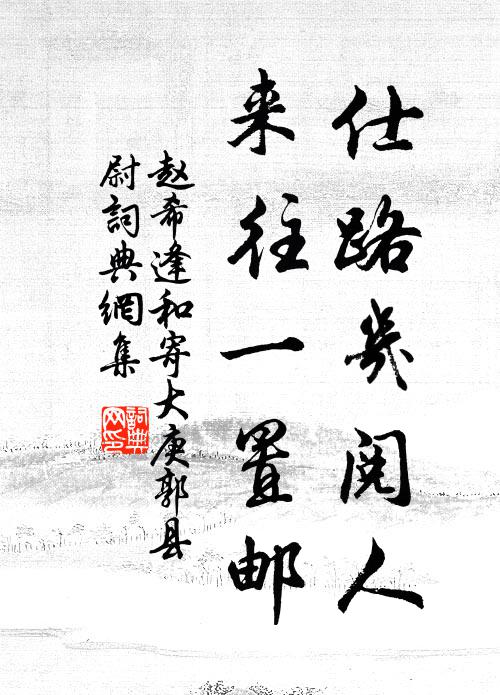 仕路幾阅人
来往一置邮
赵希逢和寄大庾郭县
尉詞典網集
詞典
网印